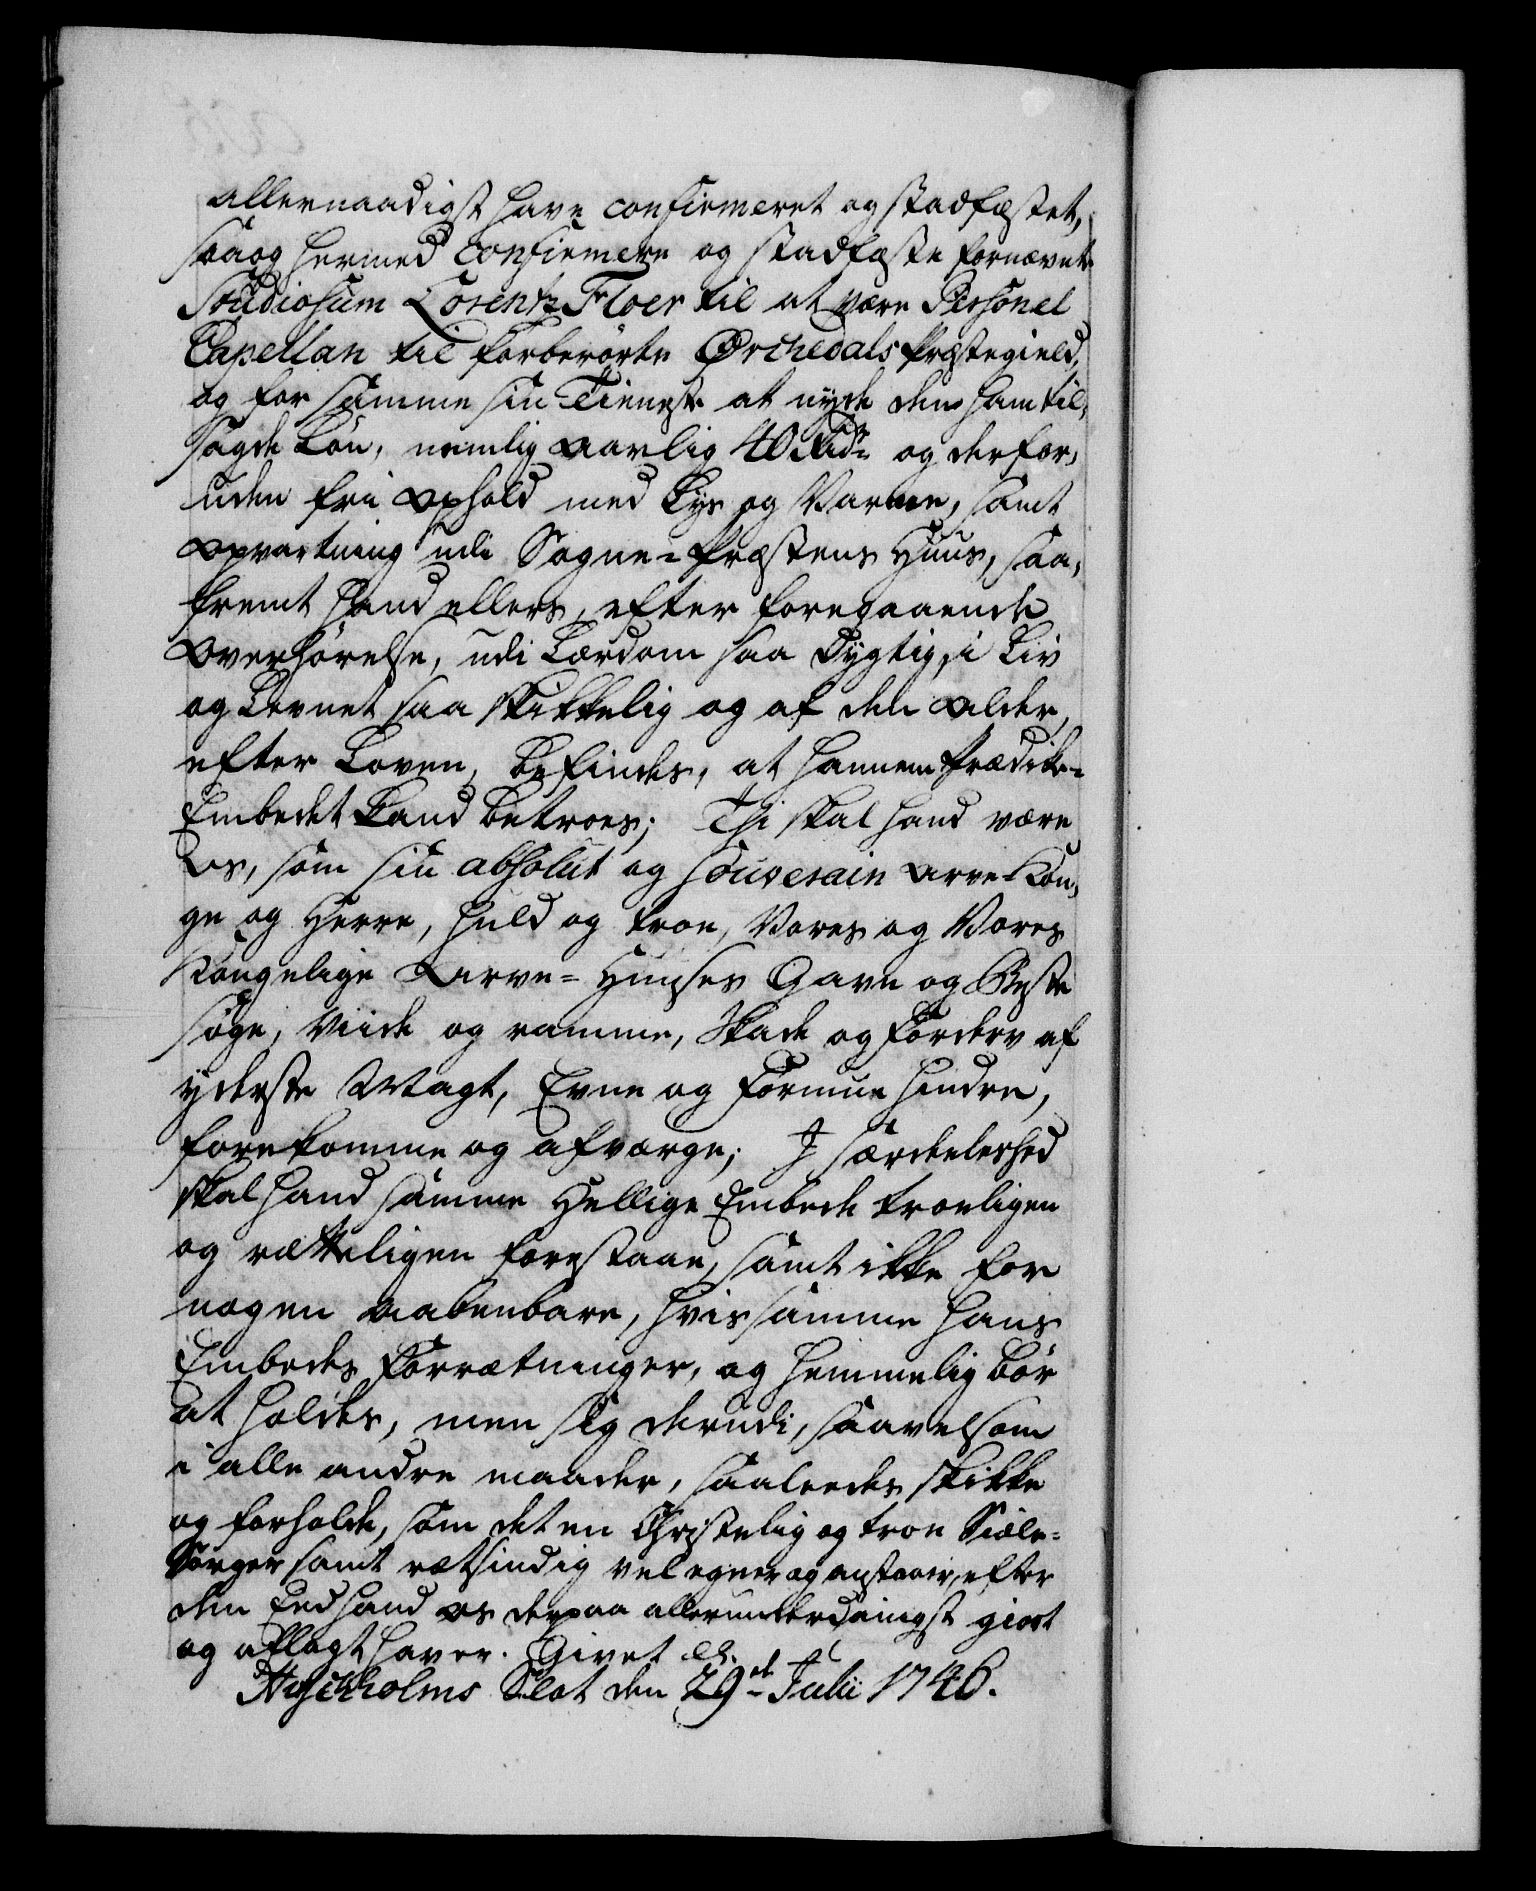 allernaadigst have confirmeret og stadfæstet,
saa og hermed confirmere og stadfæste fornævnte
Studiosum Lorentz Floer til at være Personel
Capellan til forberørte Ørchedals Præstegield,
og for samme sin Tieneste at nyde den ham til,
sagde Løn, nemlig aarlig 40 Rdr og derfor,
uden frie ophold med Lys og Varme, samt
opvartning udi Sogne-Præstens Huus, saa,
fremt hand ellers, efter foregaaende
Overhørelse, udi Lærdom saa Dygtig, i Liv
og Levnet saa skikkelig og af den alder,
efter Loven, befindes, at hannem Prædike-
Embedet kand betroes; Thi skal hand være
os, som sin absolut og souverain arve-Kon,
ge og Herre, huld og troe, Vores og Vores
Kongelige Arve-Huuses Gavn og Beste
søge, viide og ramme, Skade og Forderv af
yderste Magt, Evne og Formue hindre,
forekomme og afværge; I særdeleshed
skal hand samme Hellige Embede troeligen
og rætteligen forestaae, samt ikke for
nogen aabenbare, hvis samme hans
Embedes Forrætninger, og hemmelig bør
at holdes, men sig derudi, saavelsom
i alle andre maader, saaledes skikke
og forholde, som det en Christelig og troe Siæle-
Sørger samt rætsindig vel egner og anstaaer, efter
den Eed hand os derpaa allerunderdanigst giort
og aflagt haver. Givet &c.
Hirschholms Slot den 29de Julii 1746.